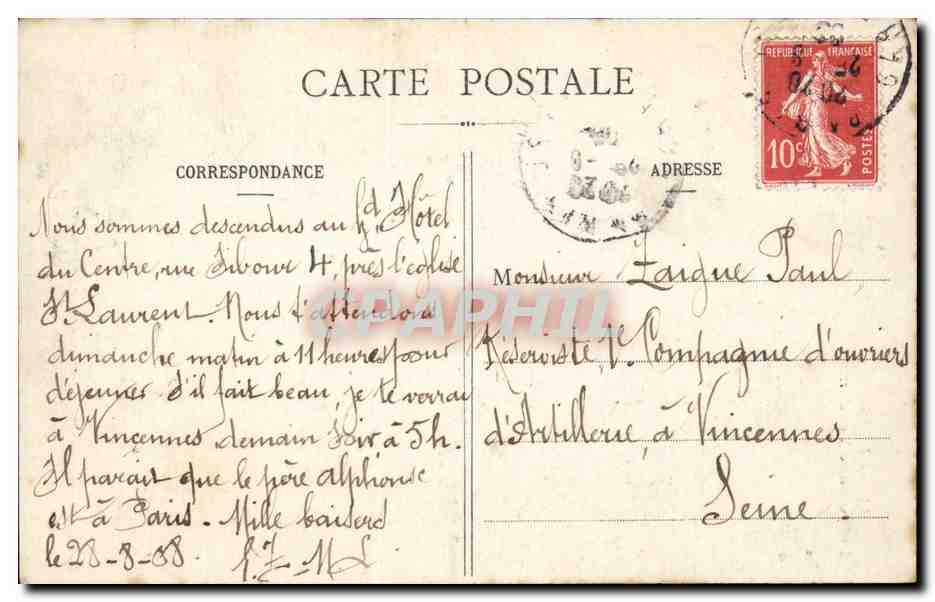 CARTE POSTALE
CORRESPONDANCE
Nous sommes descendus au Gd Hôtel
du Centre, rue Sibour 4, près l'église
St Laurent. Nous t'attendons
dimanche matin à 11 heures pour
déjeuner s'il fait beau, je te verrai
à Vincennes demain soir à 5h.
Il parait que le père alphonse
est à Paris. Mille baisers
le 28-8-08.
ADRESSE
Monsieur Zaigue Paul
Réserviste 7e Compagnie d'ouvriers
d'Artillerie à Vincennes
Seine.
REPUBLIQUE FRANÇAISE
10c
POSTES
CPAPHIL